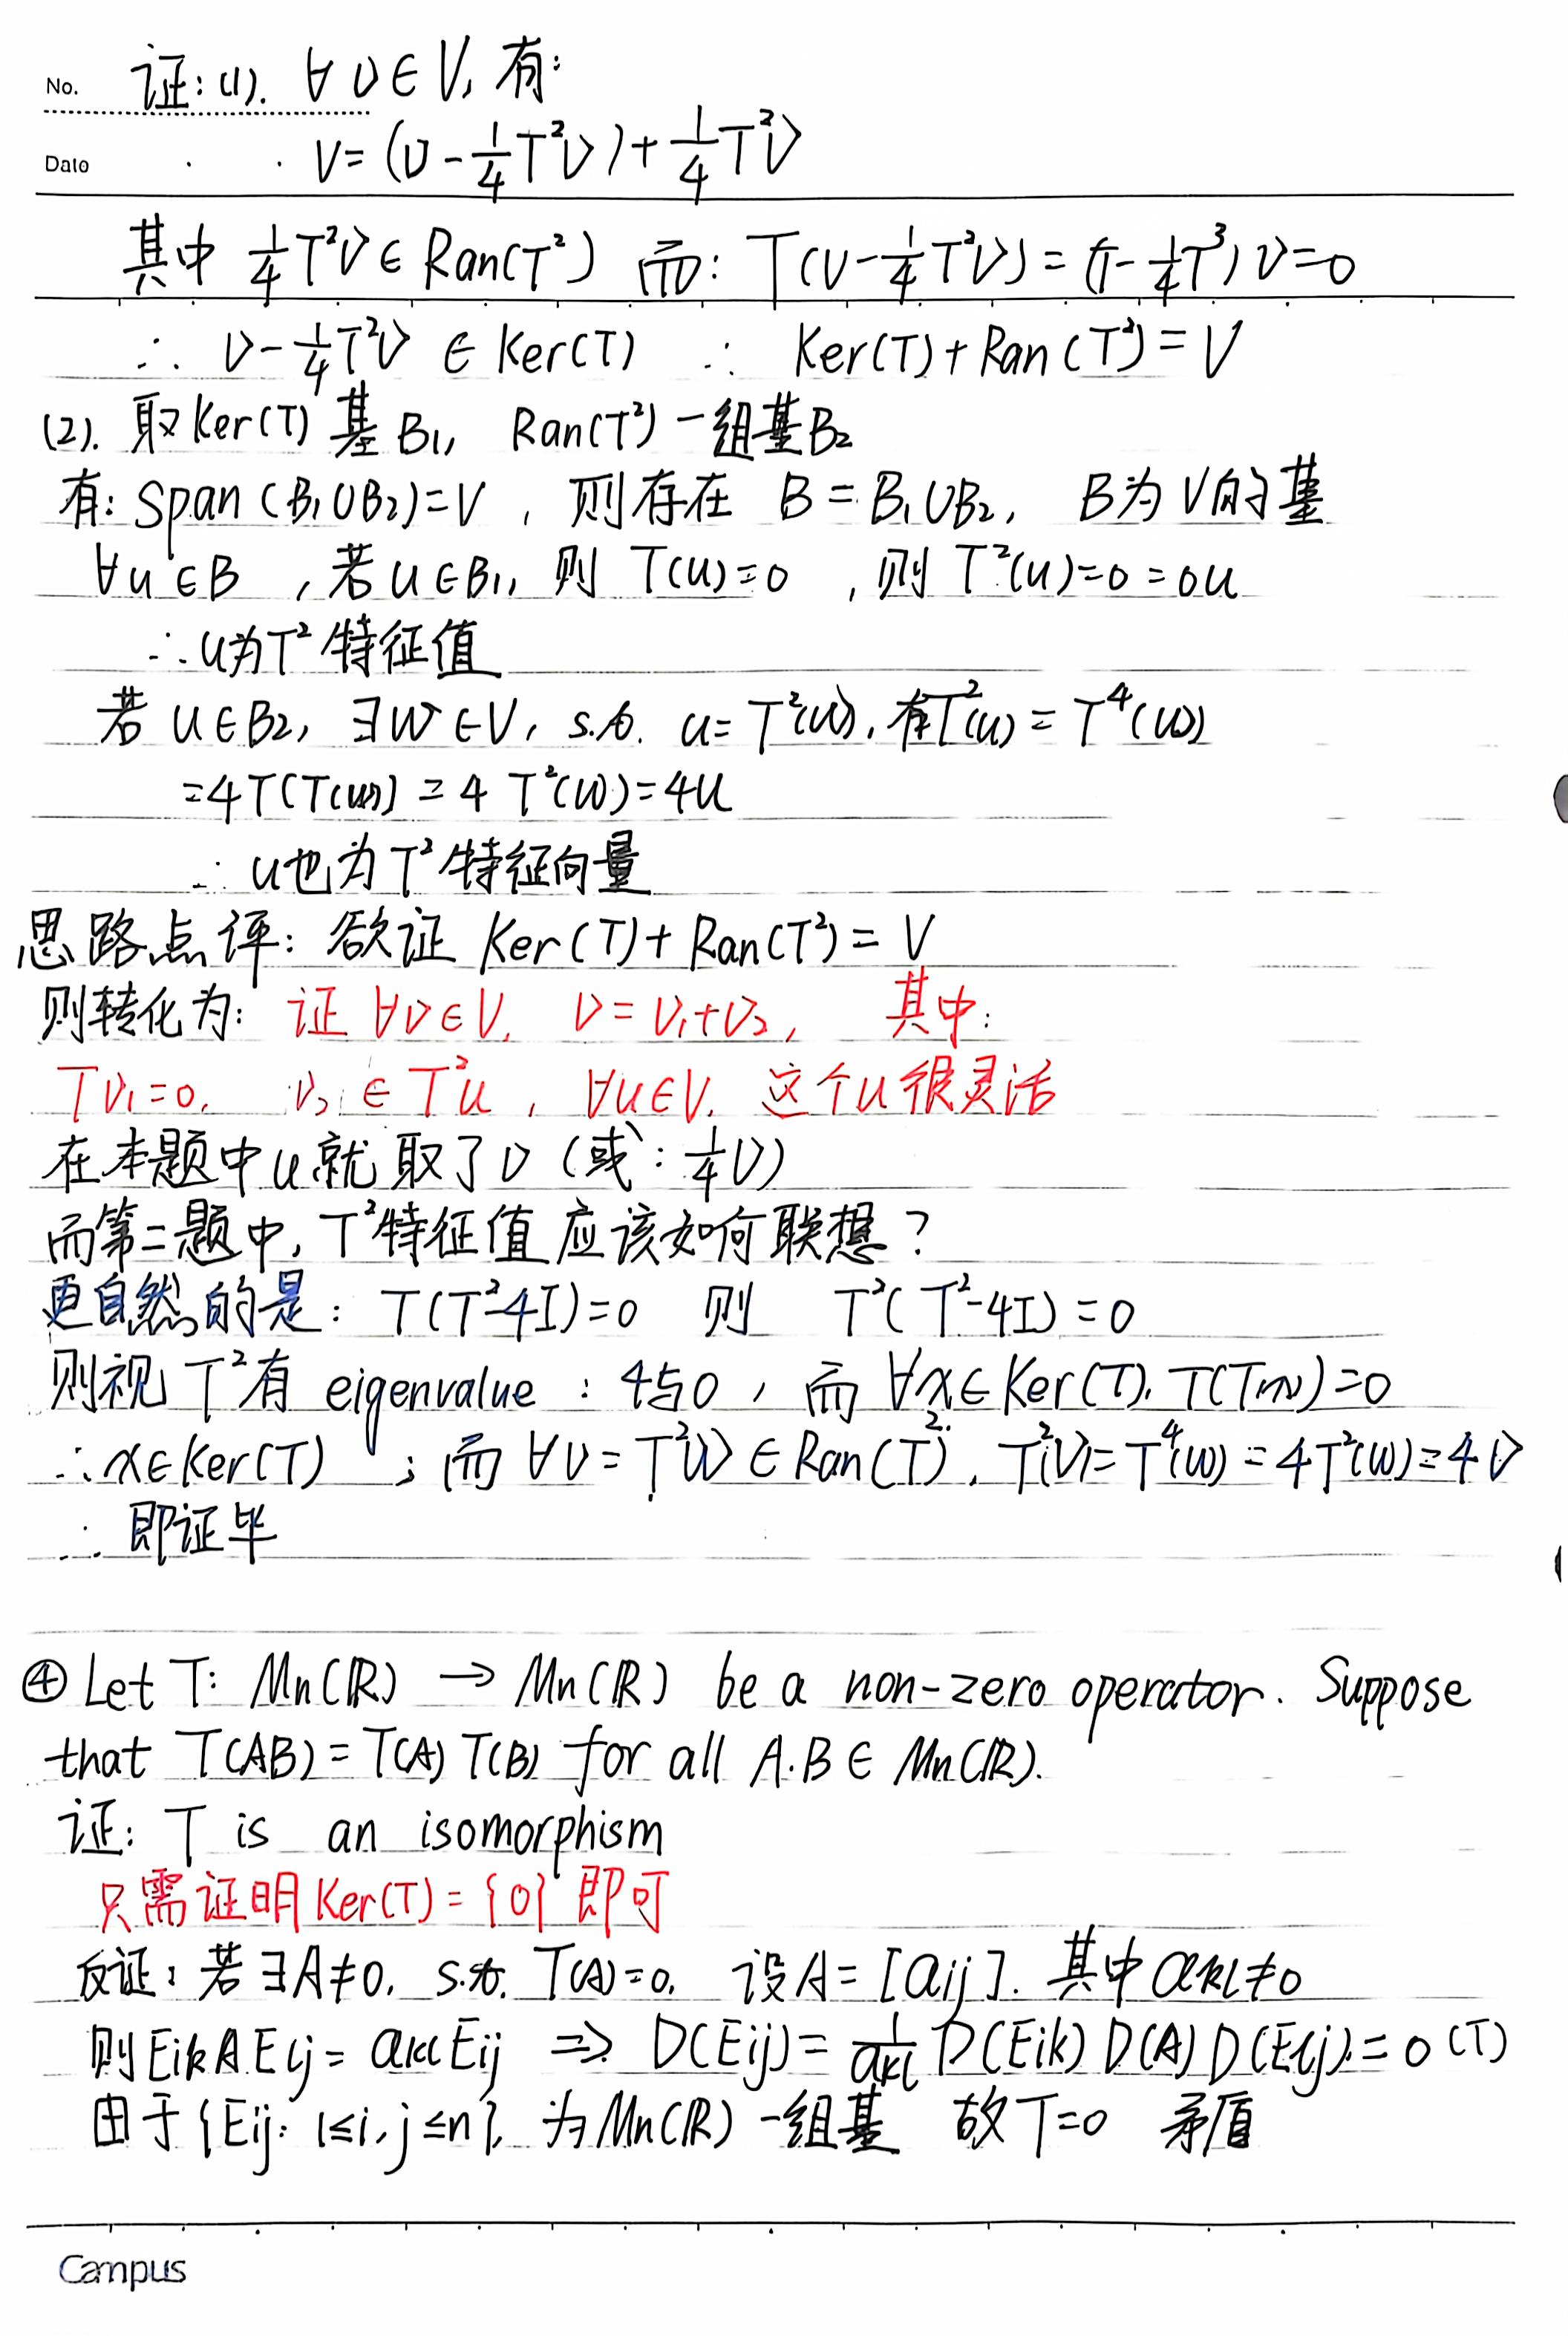 No. 证:(1). ∀υ∈V, 有:
Date V=(υ-1/4T²υ)+1/4T²υ
其中 1/4T²υ∈Ran(T²) 而: T(υ-1/4T²υ)=(T-1/4T³)υ=0
∴ υ-1/4T²υ ∈Ker(T) ∴ Ker(T)+Ran(T²)=V
(2). 取Ker(T)基B₁, Ran(T²)一组基B₂
有: Span(B₁∪B₂)=V , 则存在 B=B₁∪B₂, B为V的基
∀u∈B , 若u∈B₁, 则 T(u)=0 , 则 T²(u)=0=0u
∴u为T²特征值
若 u∈B₂, ∃w∈V, s.t. u=T²(w), 有T²(u)=T⁴(w)
=4T(T(w))=4T²(w)=4u
∴ u也为T²特征向量
思路点评: 欲证 Ker(T)+Ran(T²)=V
则转化为: 证 ∀υ∈V, υ=υ₁+υ₂, 其中:
Tυ₁=0, υ₂∈T²u, ∀u∈V, 这个u很灵活
在本题中u就取了υ (或: 1/4υ)
而第二题中, T²特征值应该如何联想?
更自然的是: T(T²-4I)=0 则 T²(T²-4I)=0
则视T²有 eigenvalue : 4与0 , 而 ∀x∈Ker(T), T(T(x))=0
∴x∈Ker(T) ; 而 ∀υ=T²w∈Ran(T²), T²(υ)=T⁴(w)=4T²(w)=4υ
∴ 即证毕
④ Let T: Mn(ℝ) → Mn(ℝ) be a non-zero operator. Suppose
that T(AB)=T(A)T(B) for all A.B∈Mn(ℝ).
证: T is an isomorphism
只需证明Ker(T)={0}即可
反证: 若∃A≠0, s.t. T(A)=0, 设A=[aij]. 其中akl≠0
则EikAElj=aklEij ⇒ D(Eij)=1/akl D(Eik)D(A)D(Elj)=0 (T)
由于{Eij: 1≤i,j≤n}, 为Mn(ℝ)一组基 故T=0 矛盾
Campus